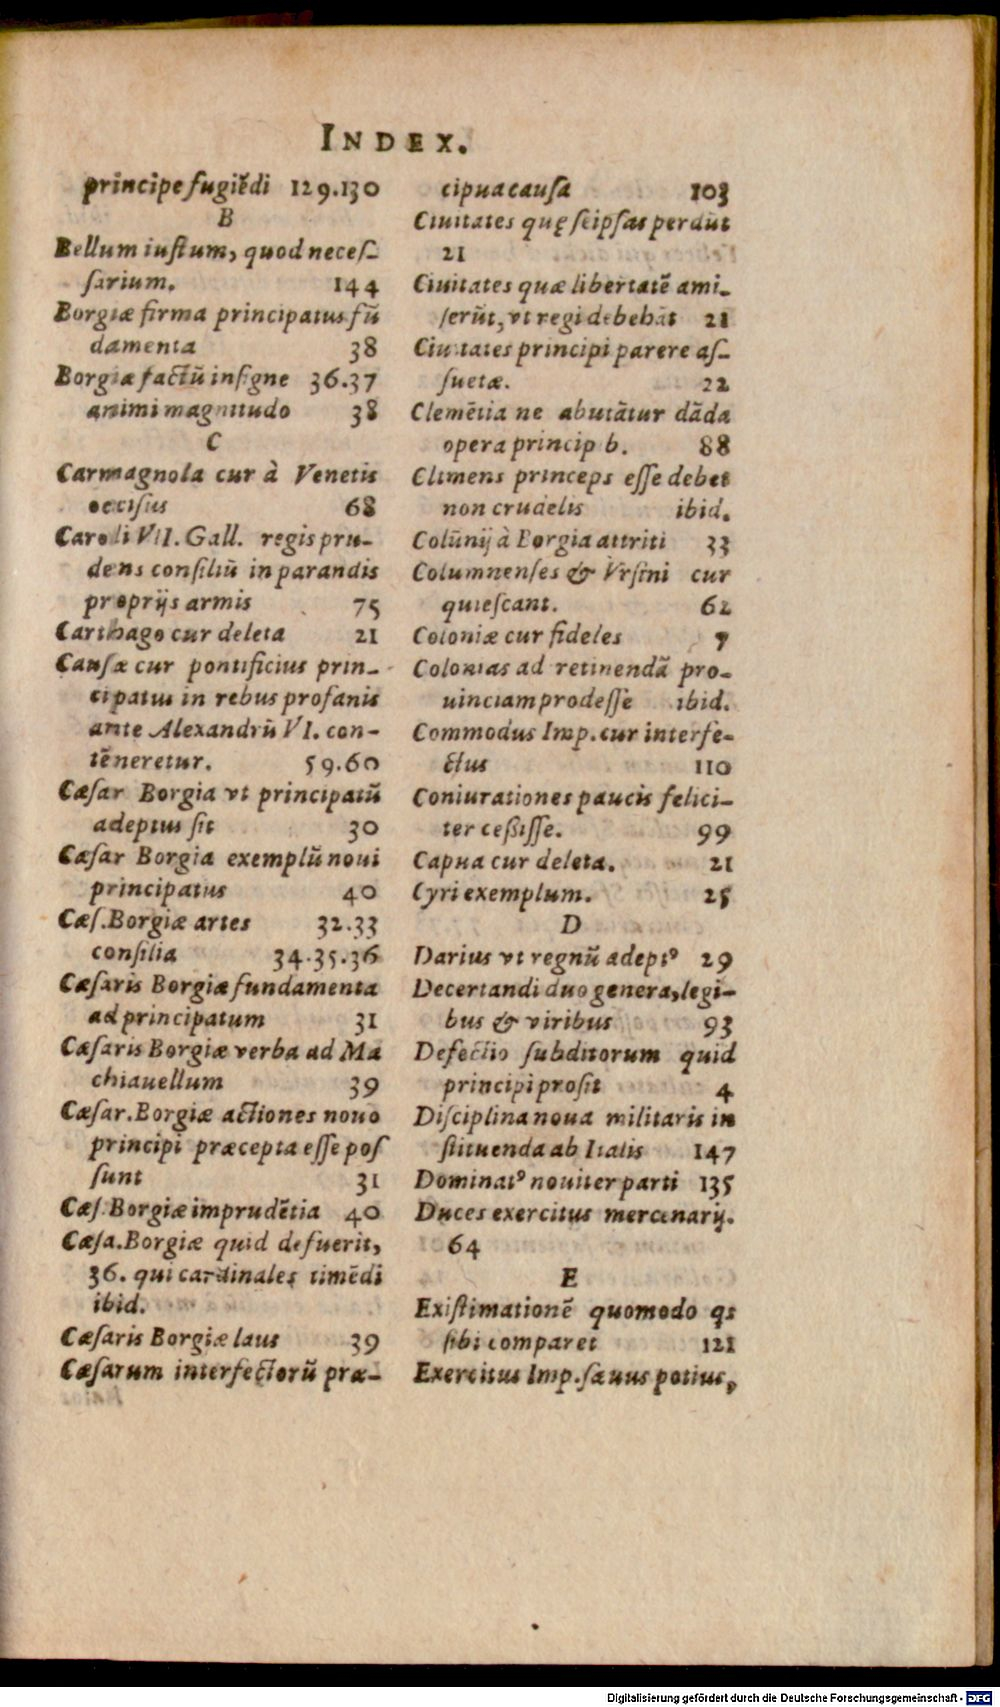 INDEX.
principe fugiẽdi 129.130
B
Bellum iustum, quod neces-
sarium. 144
Borgiæ firma principatus fũ
damenta 38
Borgiæ factũ insigne 36.37
animi magnitudo 38
C
Carmagnola cur à Venetis
occisus 68
Caroli VII. Gall. regis pru-
dens consiliũ in parandis
proprijs armis 75
Carthago cur deleta 21
Causæ cur pontificius prin-
cipatus in rebus profanis
ante Alexandrũ VI. con-
tẽneretur. 59.60
Cæsar Borgia vt principatũ
adeptus sit 30
Cæsar Borgia exemplũ noui
principatus 40
Cæs. Borgiæ artes 32.33
consilia 34.35.36
Cæsaris Borgiæ fundamenta
ad principatum 31
Cæsaris Borgiæ verba ad Ma
chiauellum 39
Cæsar. Borgiæ actiones nouo
principi præcepta esse pos
sunt 31
Cæs. Borgiæ imprudẽtia 40
Cæsa. Borgiæ quid defuerit,
36. qui cardinales timẽdi
ibid.
Cæsaris Borgiæ laus 39
Cæsarum interfectorũ præ-
cipua causa 103
Ciuitates quę seipsas perdũt
21
Ciuitates quæ libertatẽ ami-
serũt, vt regi debebãt 21
Ciuitates principi parere as-
suetæ. 22
Clemẽtia ne abutãtur dãda
opera princip b. 88
Climens princeps esse debet
non crudelis ibid.
Colũnij à Borgia attriti 33
Columnenses & Vrsini cur
quiescant. 62
Coloniæ cur fideles 7
Colonias ad retinendã pro-
uinciam prodesse ibid.
Commodus Imp. cur interfe-
ctus 110
Coniurationes paucis felici-
ter cessisse. 99
Capua cur deleta. 21
Cyri exemplum. 25
D
Darius vt regnũ adeptꝰ 29
Decertandi duo genera, legi-
bus & viribus 93
Defectio subditorum quid
principi prosit 4
Disciplina noua militaris in
stituenda ab Italis 147
Dominatꝰ nouiter parti 135
Duces exercitus mercenarij.
64
E
Existimationẽ quomodo qs
sibi comparet 121
Exercitus Imp. sæuus potius,
Digitalisierung gefördert durch die Deutsche Forschungsgemeinschaft - DFG